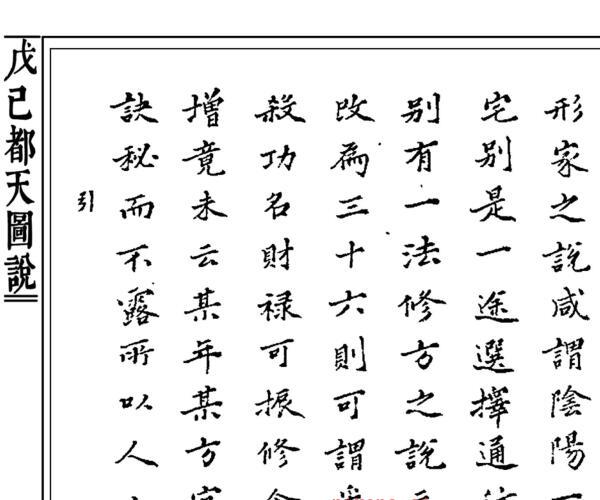 形家之說咸謂陰陽
宅別是一途選擇通
別有一法修方之說
改為三十六則可謂
殺功名財祿可振修
增竟未云某年某方
訣秘而不露所以人
引
戊己都天圖說